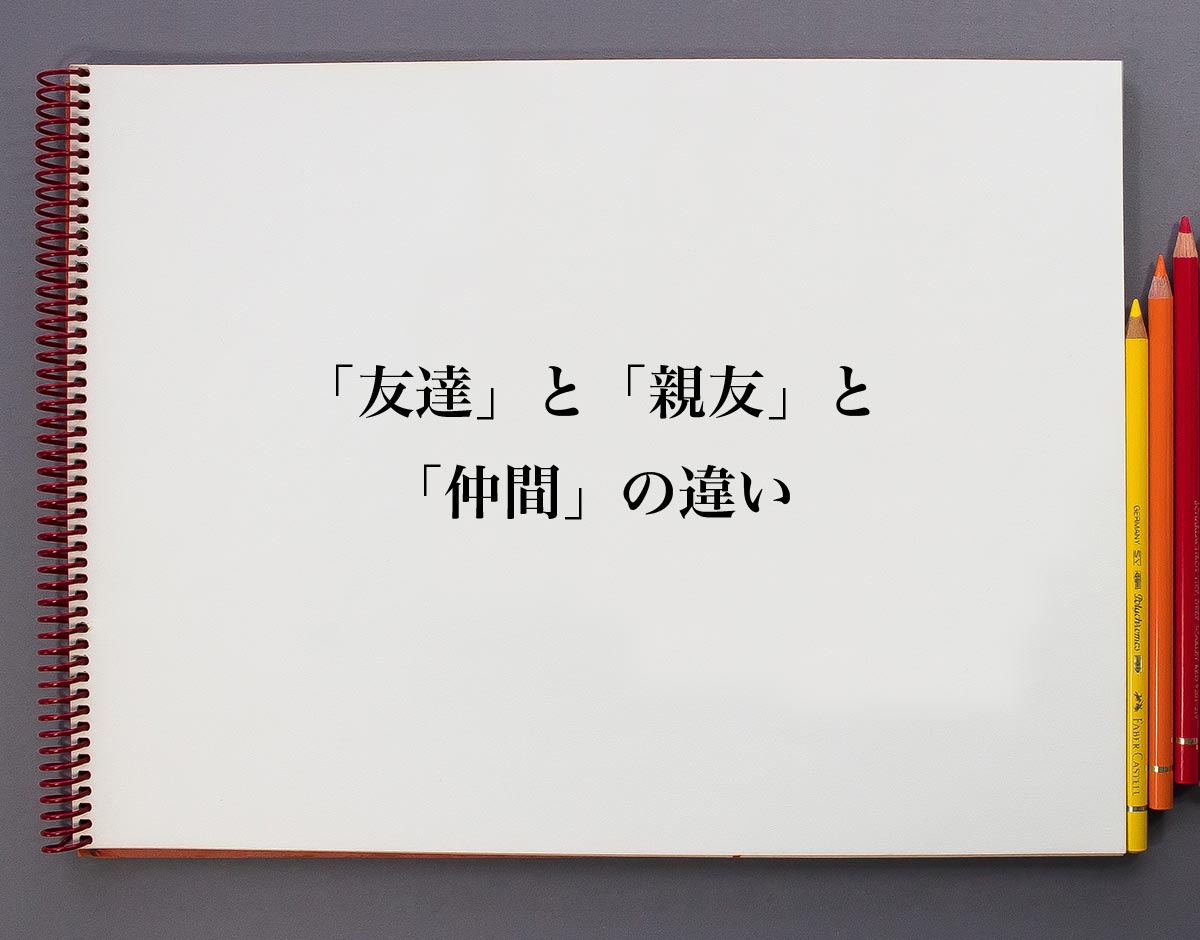 「友達」と「親友」と
「仲間」の違い
GERMANY
Polychromos
FABER CASTELL